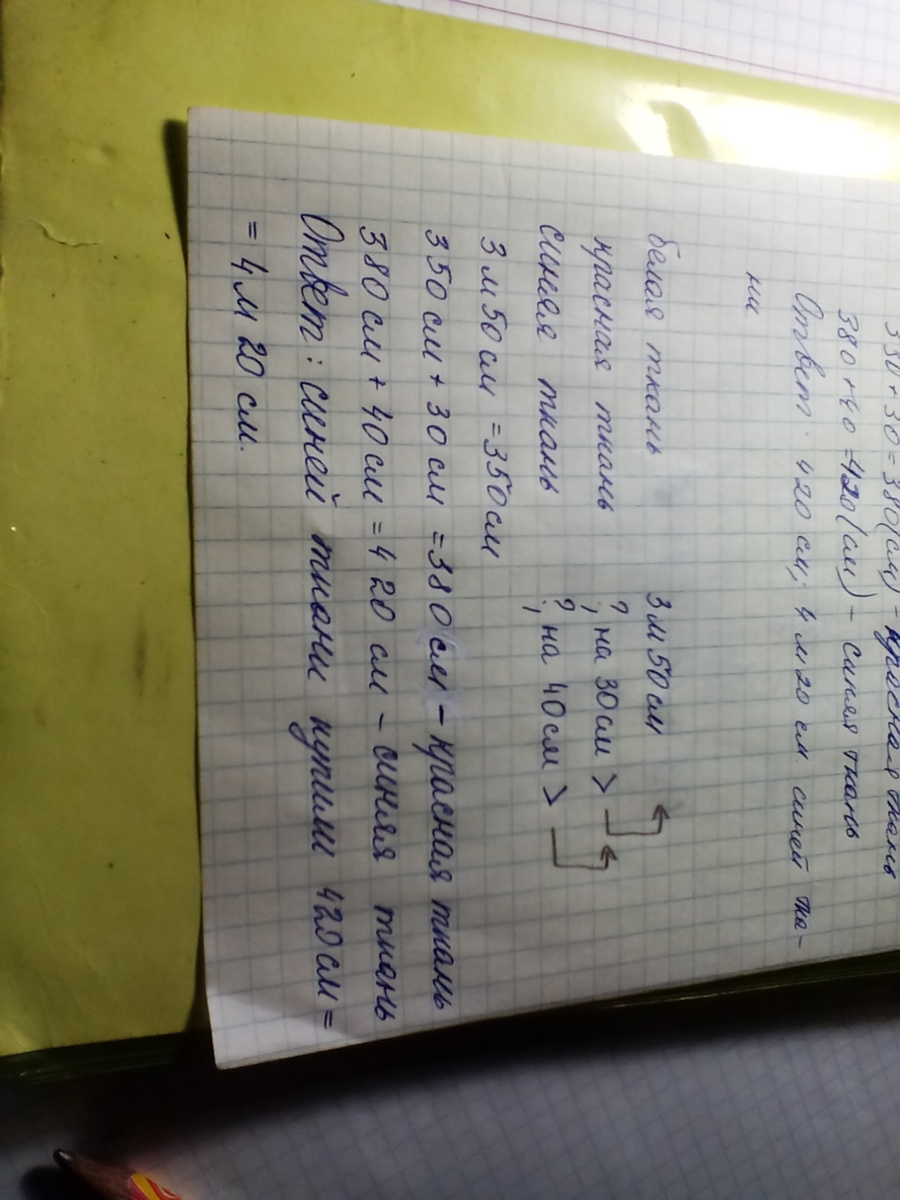 350 + 30 = 380 (см) - красная ткань
380 + 40 = 420 (см) - синяя ткань
Ответ: 420 см; 4 м 20 см синей тка-
ни
белая ткань 3 м 50 см
красная ткань ?, на 30 см >
синяя ткань ?, на 40 см >
3 м 50 см = 350 см
350 см + 30 см = 380 см - красная ткань
380 см + 40 см = 420 см - синяя ткань
Ответ: синей ткани купили 420 см =
= 4 м 20 см.